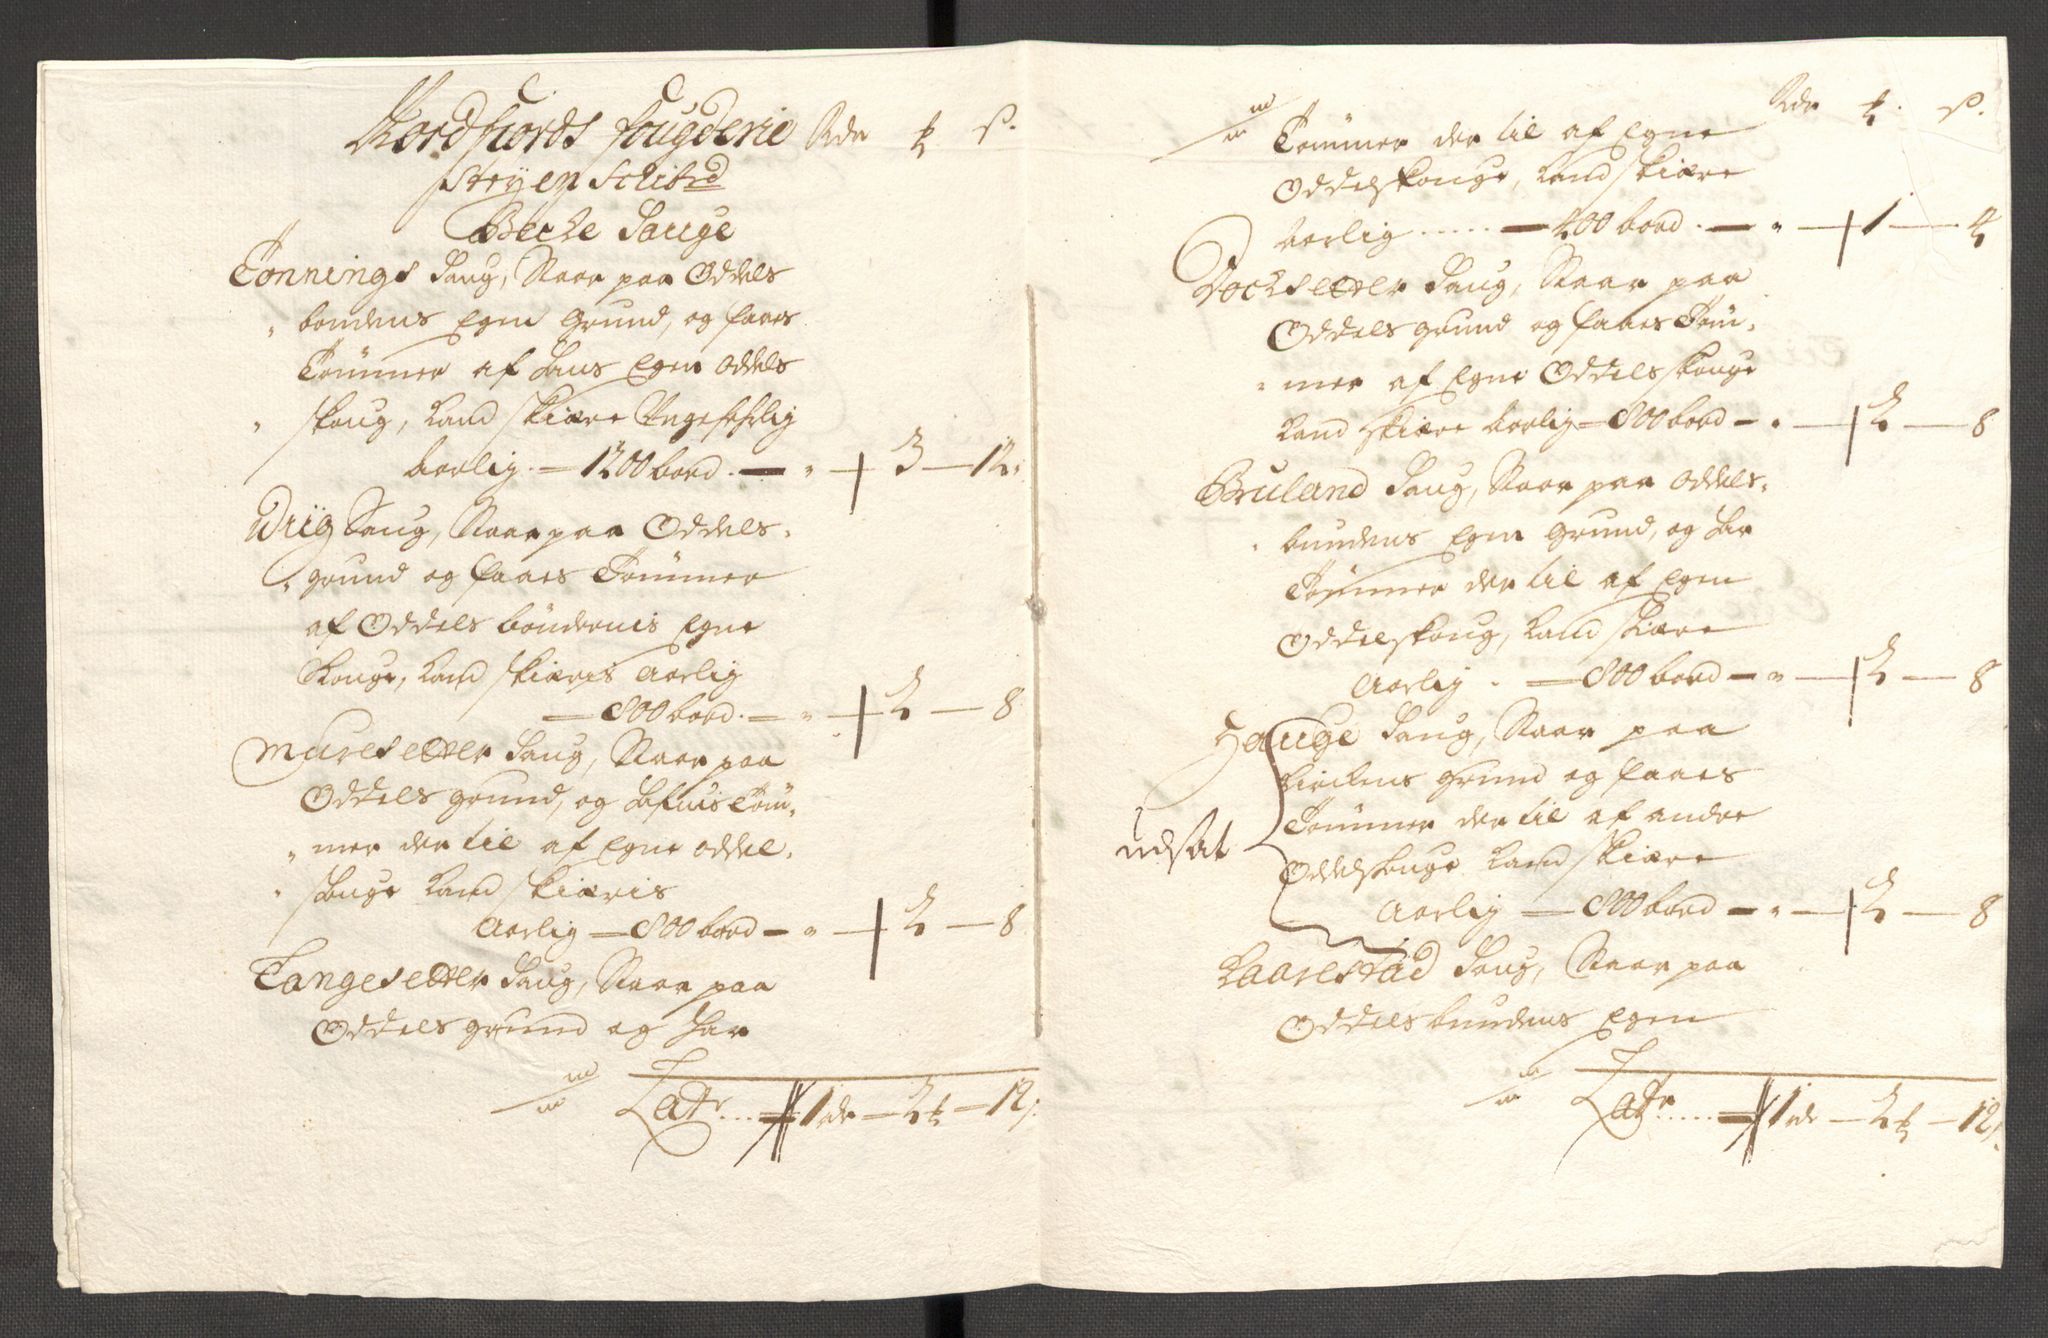 Nordfiords fougderie Rdr ₰ s.
Stryen Schibrd
Beche Sauge
Tonnings Saug, Staar paa Oddels
bondens Egen Grund, og faaes
Tømmer af hans Egen Oddels
skoug, kand skiære Ungefehrlig
Aarlig. — 1200 bord. — " — 3 — 12.
Driig Saug, Staar paa Oddels-
grund og faaes Tømmer
af Oddels bøndernis Egne
Skouge, kand skiæris Aarlig
— 800 bord. — " — 2 — 8
Muresetter Saug, Staar paa
Oddels grund, og hafuis Tøm-
mer der til af Egne oddel-
skouge kand skiæris
Aarlig — 800 bord — " — 2 — 8
Tangesetter Saug, Staar paa
Oddels grund og har
Latr.... — 1 rdr — 2 ₰ — 12 s.
Rdr ₰ s.
Tømmer der til af Egne
Oddelskouge, kand skiære
Aarlig ..... — 400 bord. — " — 1 — 4
Dochsetter Saug, Staar paa
Oddels grund og faaes Tøm-
mer af Egne Oddels skouge
kand skiære Aarlig — 800 bord — " — 2 — 8
Bruland Saug, Staar paa Oddels-
bundens Egen Grund, og har
Tømmer der til af Egen
Oddelskoug, kand skiære
Aarlig. — 800 bord — " — 2 — 8
Hauge Saug, Staar paa
kirckens grund og faaes
Tømmer der til af andre
udsat
Oddelskouge kand skiære
Aarlig — 800 bord — " — 2 — 8
Kaarestad Saug, Staar paa
Oddels bundens Egen
Latr ..... — 1 rdr — 2 ₰ — 12 s.